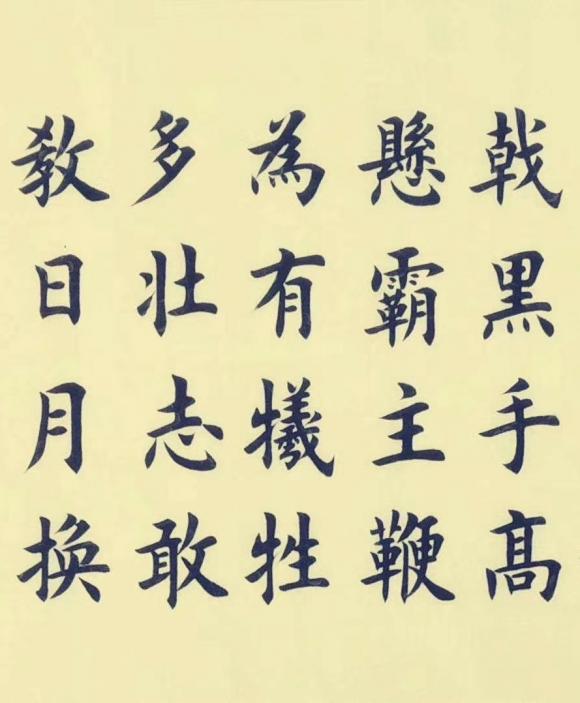 戟黒手髙
懸霸主鞭
為有犧牲
多壯志敢
教日月換